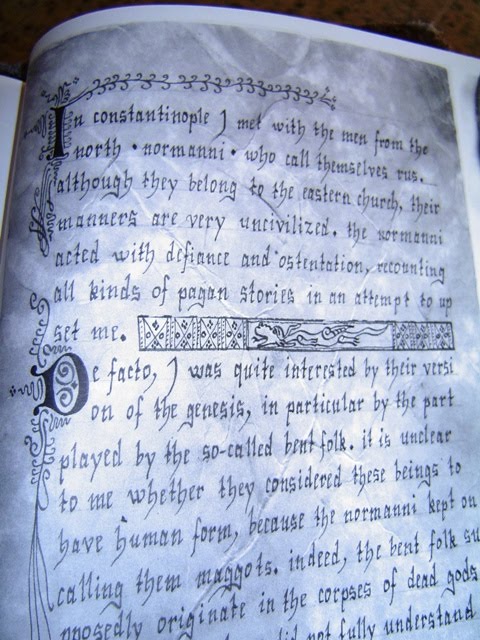 In constantinople I met with the men from the
north · normanni · who call themselves rus.
although they belong to the eastern church, their
manners are very uncivilized. the normanni
acted with defiance and ostentation, recounting
all kinds of pagan stories in an attempt to up
set me.
De facto, I was quite interested by their versi
on of the genesis, in particular by the part
played by the so-called bent folk. it is unclear
to me whether they considered these beings to
have human form, because the normanni kept on
calling them maggots. indeed, the bent folk su
pposedly originate in the corpses of dead gods
did not fully understand